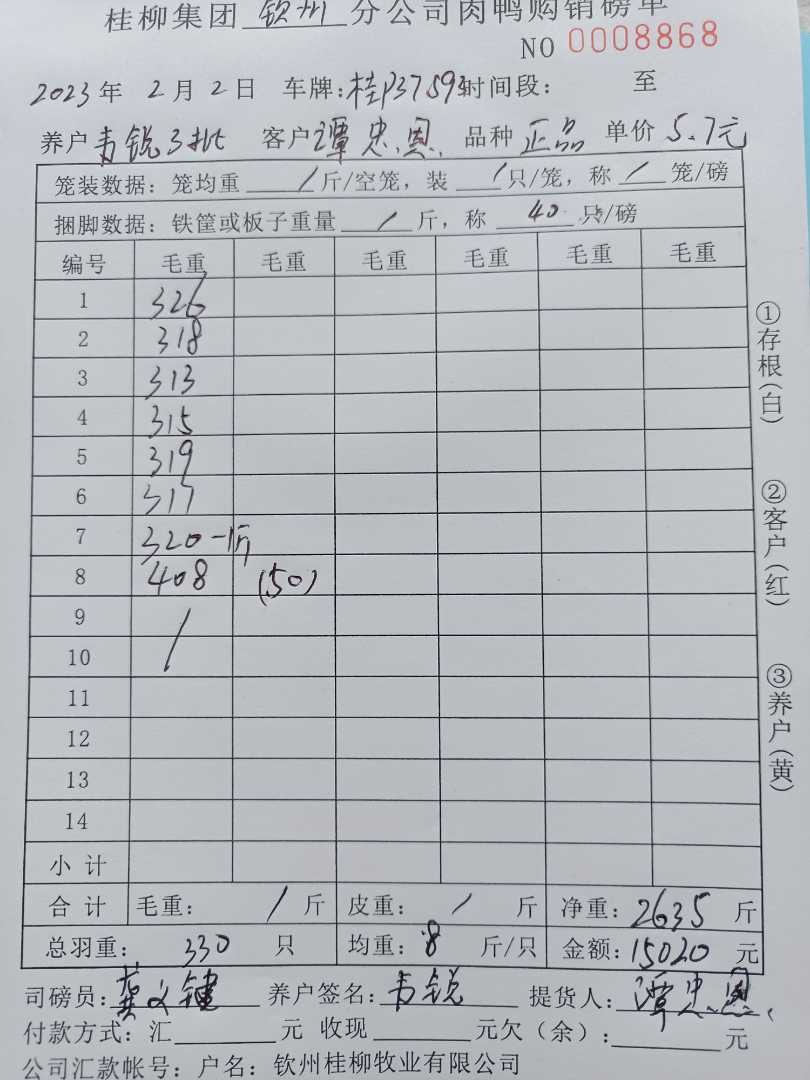 桂柳集团 钦州 分公司肉鸭购销磅单
NO 0008868
2023年 2月2日 车牌:桂P37593 时间段: 至
养户 韦锐3批 客户 谭忠恩 品种 正品 单价 5.7元
笼装数据:笼均重 / 斤/空笼,装 / 只/笼,称 / 笼/磅
捆脚数据:铁筐或板子重量 / 斤,称 40 只/磅
编号 毛重 毛重 毛重 毛重 毛重 毛重
1 326
2 318
3 313
4 315
5 319
6 317
7 320-1斤
8 408 (50)
9 /
10
11
12
13
14
小计
合计 毛重: / 斤 皮重: / 斤 净重: 2635 斤
总羽重: 330 只 均重: 8 斤/只 金额: 15020 元
司磅员: 龚文键 养户签名: 韦锐 提货人: 谭忠恩
付款方式:汇 元 收现 元欠(余): 元
公司汇款帐号:户名:钦州桂柳牧业有限公司
①存根(白)
②客户(红)
③养户(黄)